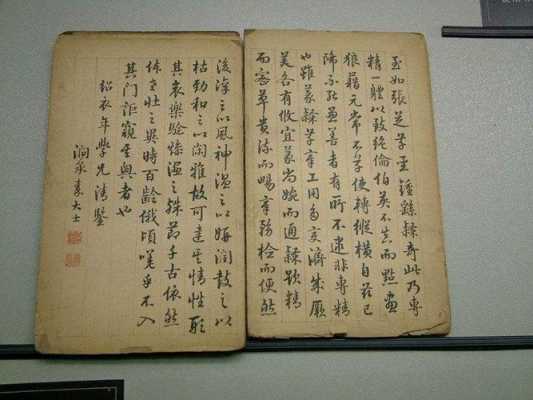 至如張芝草聖鍾繇隸奇此乃專
精一體以致絕倫伯英不真而點畫
狼藉元常不草使轉縱橫自茲已
降不能兼善者有所不逮非專精
也雖篆隸草章工用多變濟成厥
美各有攸宜篆尚婉而通隸欲精
而密草貴流而暢章務檢而便然
後凜之以風神溫之以妍潤鼓之以
枯勁和之以閑雅故可達其情性形
其哀樂驗燥濕之殊節千古依然
体老壯之異時百齡俄頃嗟乎不入
其門詎窺其奧者也
紹衣年學兄清鑒
大士